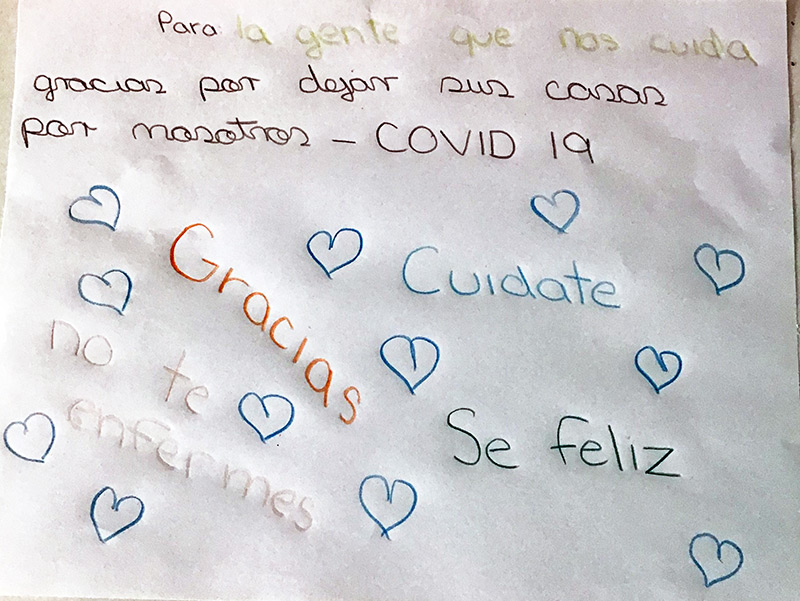 Para la gente que nos cuida
gracias por dejar sus casas
por nosotros - COVID 19
Gracias
Cuidate
no te
enfermes
Se feliz